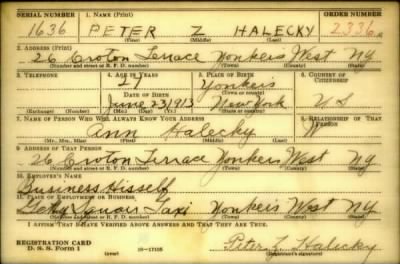 SERIAL NUMBER 1. NAME (Print) ORDER NUMBER
1636 PETER Z HALECKY 2336
(First) (Middle) (Last)
2. ADDRESS (Print)
26 Croton Terrace Yonkers West NY
(Number and street or R. F. D. number) (Town) (County) (State)
3. TELEPHONE 4. AGE IN YEARS 5. PLACE OF BIRTH 6. COUNTRY OF CITIZENSHIP
27 Yonkers
DATE OF BIRTH (Town or county)
June 23 1913 New York U S
(Exchange) (Number) (Mo.) (Day) (Yr.) (State or country)
7. NAME OF PERSON WHO WILL ALWAYS KNOW YOUR ADDRESS 8. RELATIONSHIP OF THAT PERSON
Ann Halecky W
(Mr., Mrs., Miss) (First) (Middle) (Last)
9. ADDRESS OF THAT PERSON
26 Croton Terrace Yonkers West NY
(Number and street or R. F. D. number) (Town) (County) (State)
10. EMPLOYER'S NAME
Business Hisself
11. PLACE OF EMPLOYMENT OR BUSINESS
Getty Square Taxi Yonkers West NY
(Number and street or R. F. D. number) (Town) (County) (State)
I AFFIRM THAT I HAVE VERIFIED ABOVE ANSWERS AND THAT THEY ARE TRUE.
REGISTRATION CARD
D. S. S. Form 1 16-17105 Peter Z. Halecky
(over) (Registrant's signature)